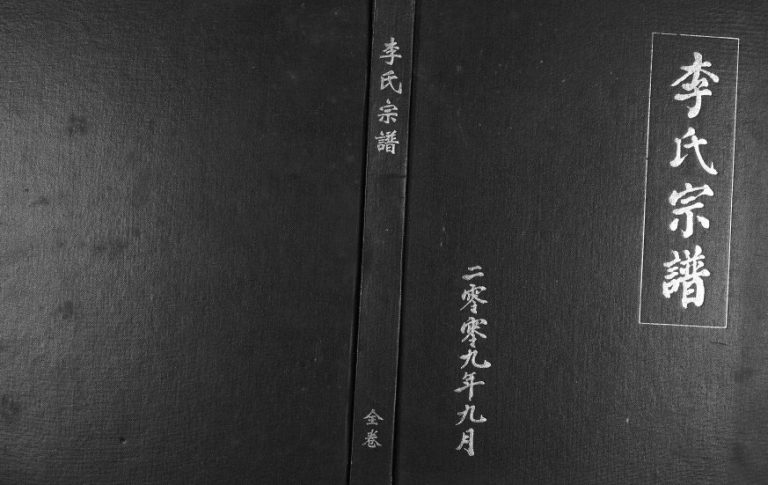 李氏宗譜
二零零九年九月
李氏宗譜
全卷